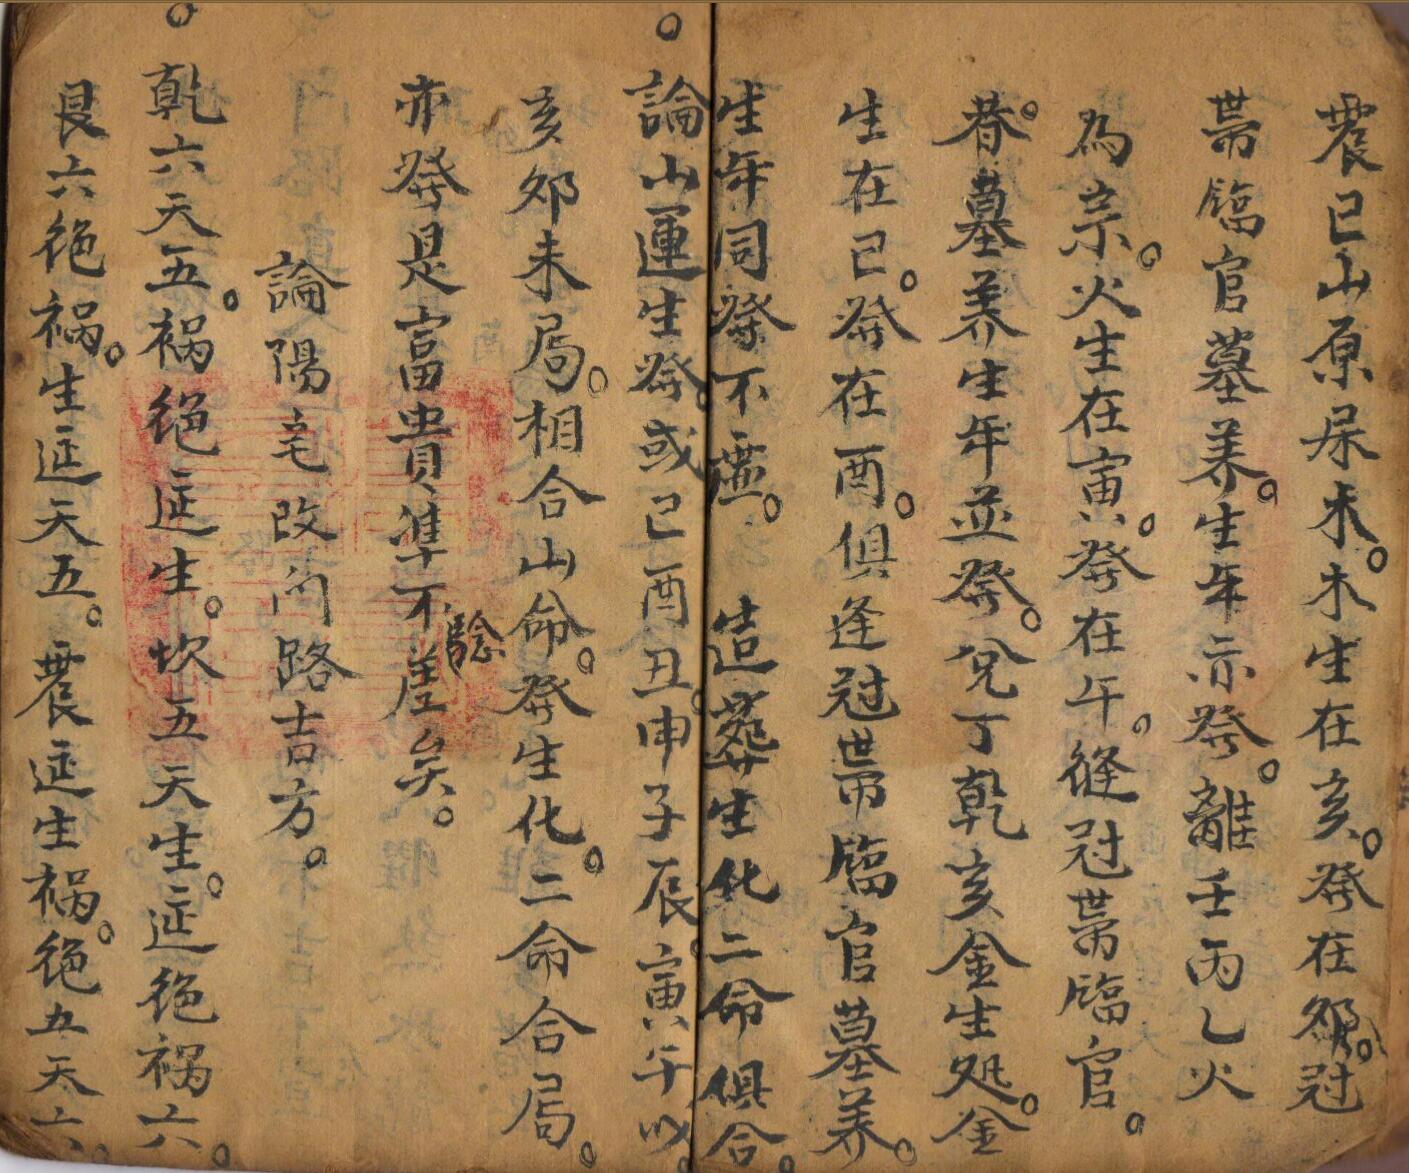 震已山原屎木。木生在亥。發在卯。冠
帶臨官墓养。生年亦發。離壬丙乙火
為宗。火生在寅。發在午。縫冠帶臨官。
昔。墓养生年並發。兌丁乾亥金生処。金
生在已。發在酉。俱逢冠帶臨官墓养。
生年同發不虛。造葬生化二命俱合。
論山運生發。或已酉丑。申子辰。寅午以
亥卯未局。相合山命。發生化。二命合局。
亦發是富貴準不差矣。
驗
論陽宅改向路吉方。
乾六天五。禍絕延生。坎五天生。延絕禍六。
艮六絕禍。生延天五。震延生禍。絕五天六。